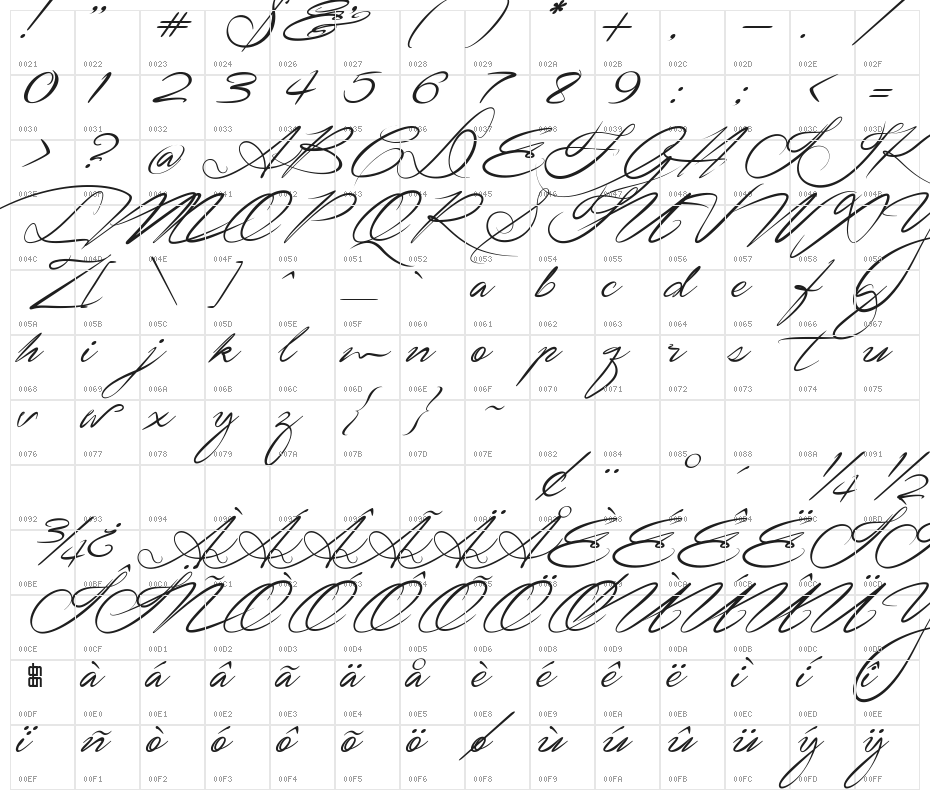 ! " # $ & ' ( ) * + , - . /
0021 0022 0023 0024 0026 0027 0028 0029 002A 002B 002C 002D 002E 002F
0 1 2 3 4 5 6 7 8 9 : ; < =
0030 0031 0032 0033 0034 0035 0036 0037 0038 0039 003A 003B 003C 003D
> ? @ A B C D E F G H I J K
003E 003F 0040 0041 0042 0043 0044 0045 0046 0047 0048 0049 004A 004B
L M N O P Q R S T U V W X Y
004C 004D 004E 004F 0050 0051 0052 0053 0054 0055 0056 0057 0058 0059
Z [ \ ] ^ _ ` a b c d e f g
005A 005B 005C 005D 005E 005F 0060 0061 0062 0063 0064 0065 0066 0067
h i j k l m n o p q r s t u
0068 0069 006A 006B 006C 006D 006E 006F 0070 0071 0072 0073 0074 0075
v w x y z { } ~
0076 0077 0078 0079 007A 007B 007D 007E 0082 0084 0085 008A 0091
¢ ¨ ° ´ ¼ ½
0092 0093 0094 00A2 00A8 00B0 00B4 00BC 00BD
¾ ¿ À Á Â Ã Ä Å È É Ê Ë Ì Í
00BE 00BF 00C0 00C1 00C2 00C3 00C4 00C5 00C8 00C9 00CA 00CB 00CC 00CD
Î Ï Ñ Ò Ó Ô Õ Ö Ø Ù Ú Û Ü Ý
00CE 00CF 00D1 00D2 00D3 00D4 00D5 00D6 00D8 00D9 00DA 00DB 00DC 00DD
à á â ã ä å è é ê ë ì í î
00DF 00E0 00E1 00E2 00E3 00E4 00E5 00E8 00E9 00EA 00EB 00EC 00ED 00EE
ï ñ ò ó ô õ ö ø ù ú û ü ý ÿ
00EF 00F1 00F2 00F3 00F4 00F5 00F6 00F8 00F9 00FA 00FB 00FC 00FD 00FF